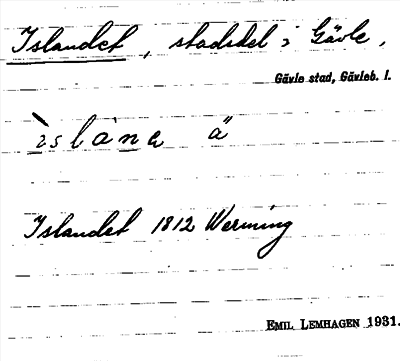 Islandet, stadsdel i Gävle,
Gävle stad, Gävleb. l.
ìslànə ä
Islandet 1812 Werming
EMIL LEMHAGEN 1931.